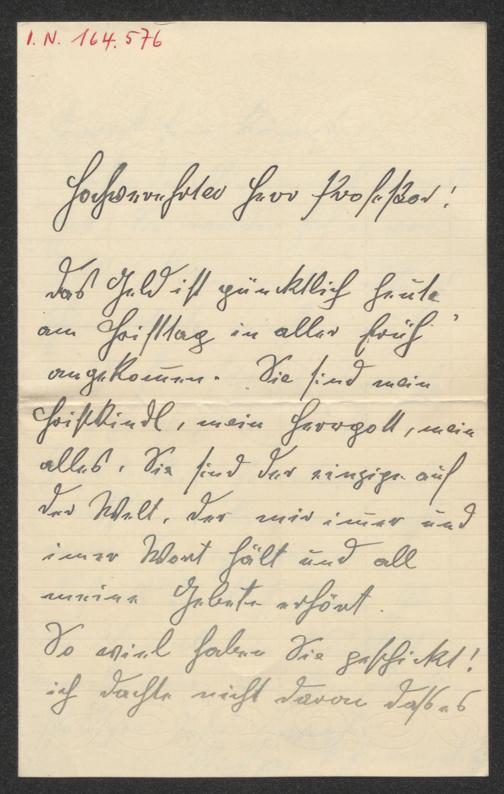 I. N. 164.576
Hochverehrter Herr Professor!
Das Geld ist pünktlich heute
am Christtag in aller Früh
angekom̅en. Sie sind mein
Christkindl, mein Herrgott, mein
alles. Sie sind der einzige auf
der Welt, der mir im̅er und
im̅er Wort hält und all
meine Gebete erhört.
So viel haben Sie geschickt!
ich dachte nicht daran daß es